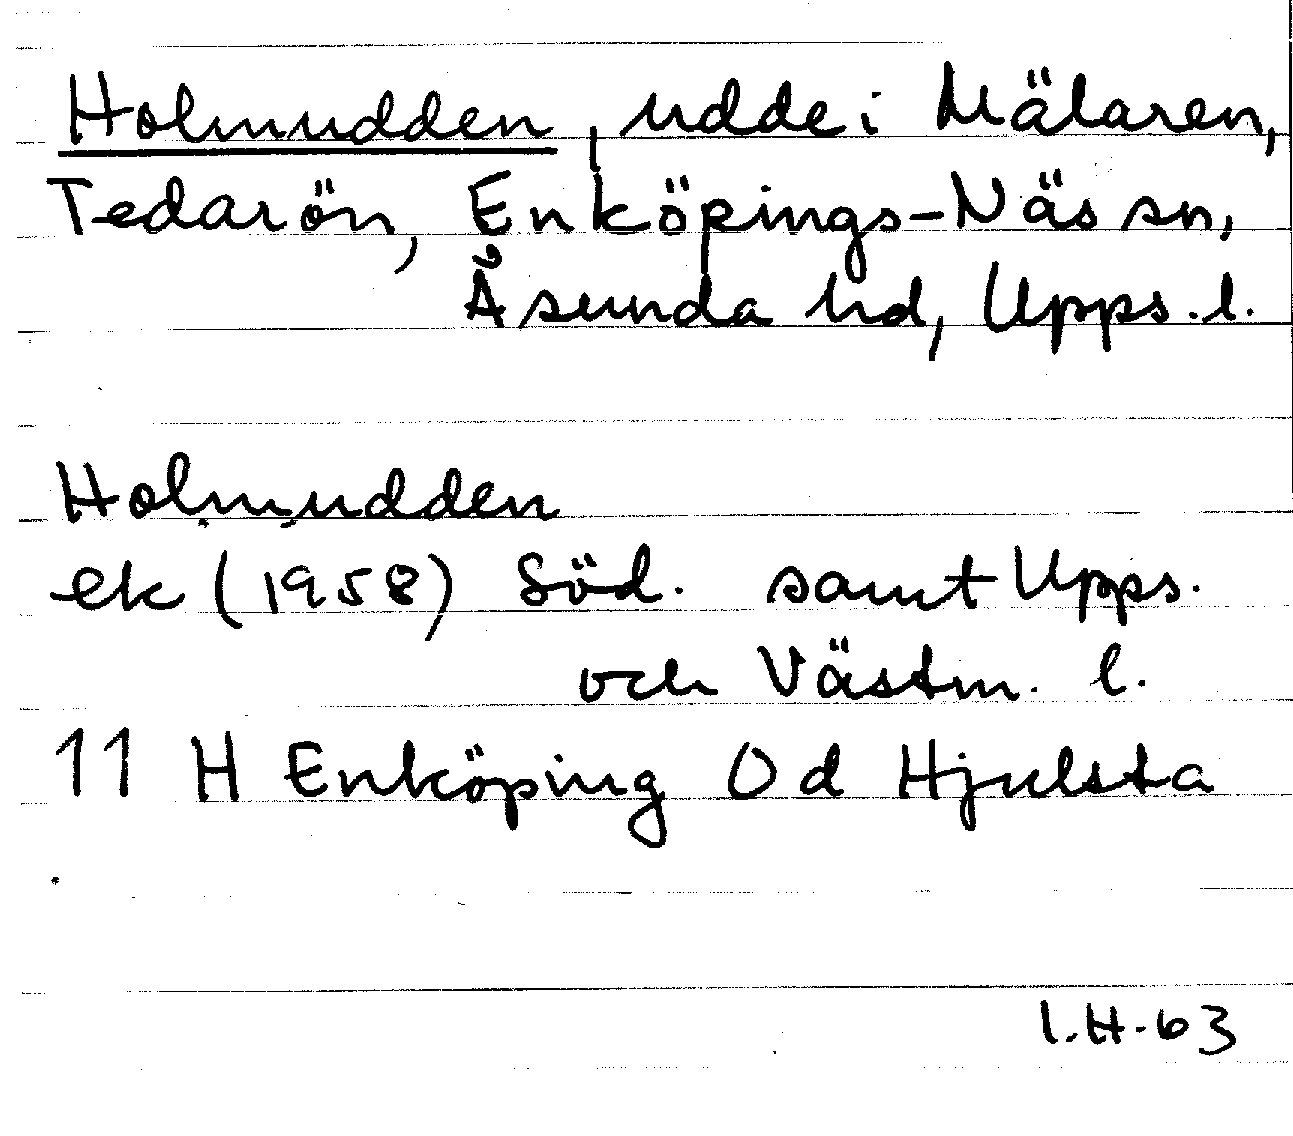 Holmudden, udde i Mälaren,
Tedarön, Enköpings-Näs sn,
Åsunda hd, Upps. l.
Holmudden
ek (1958) Söd. samt Upps.
och Västm. l.
11 H Enköping Od Hjulsta
I.H-63